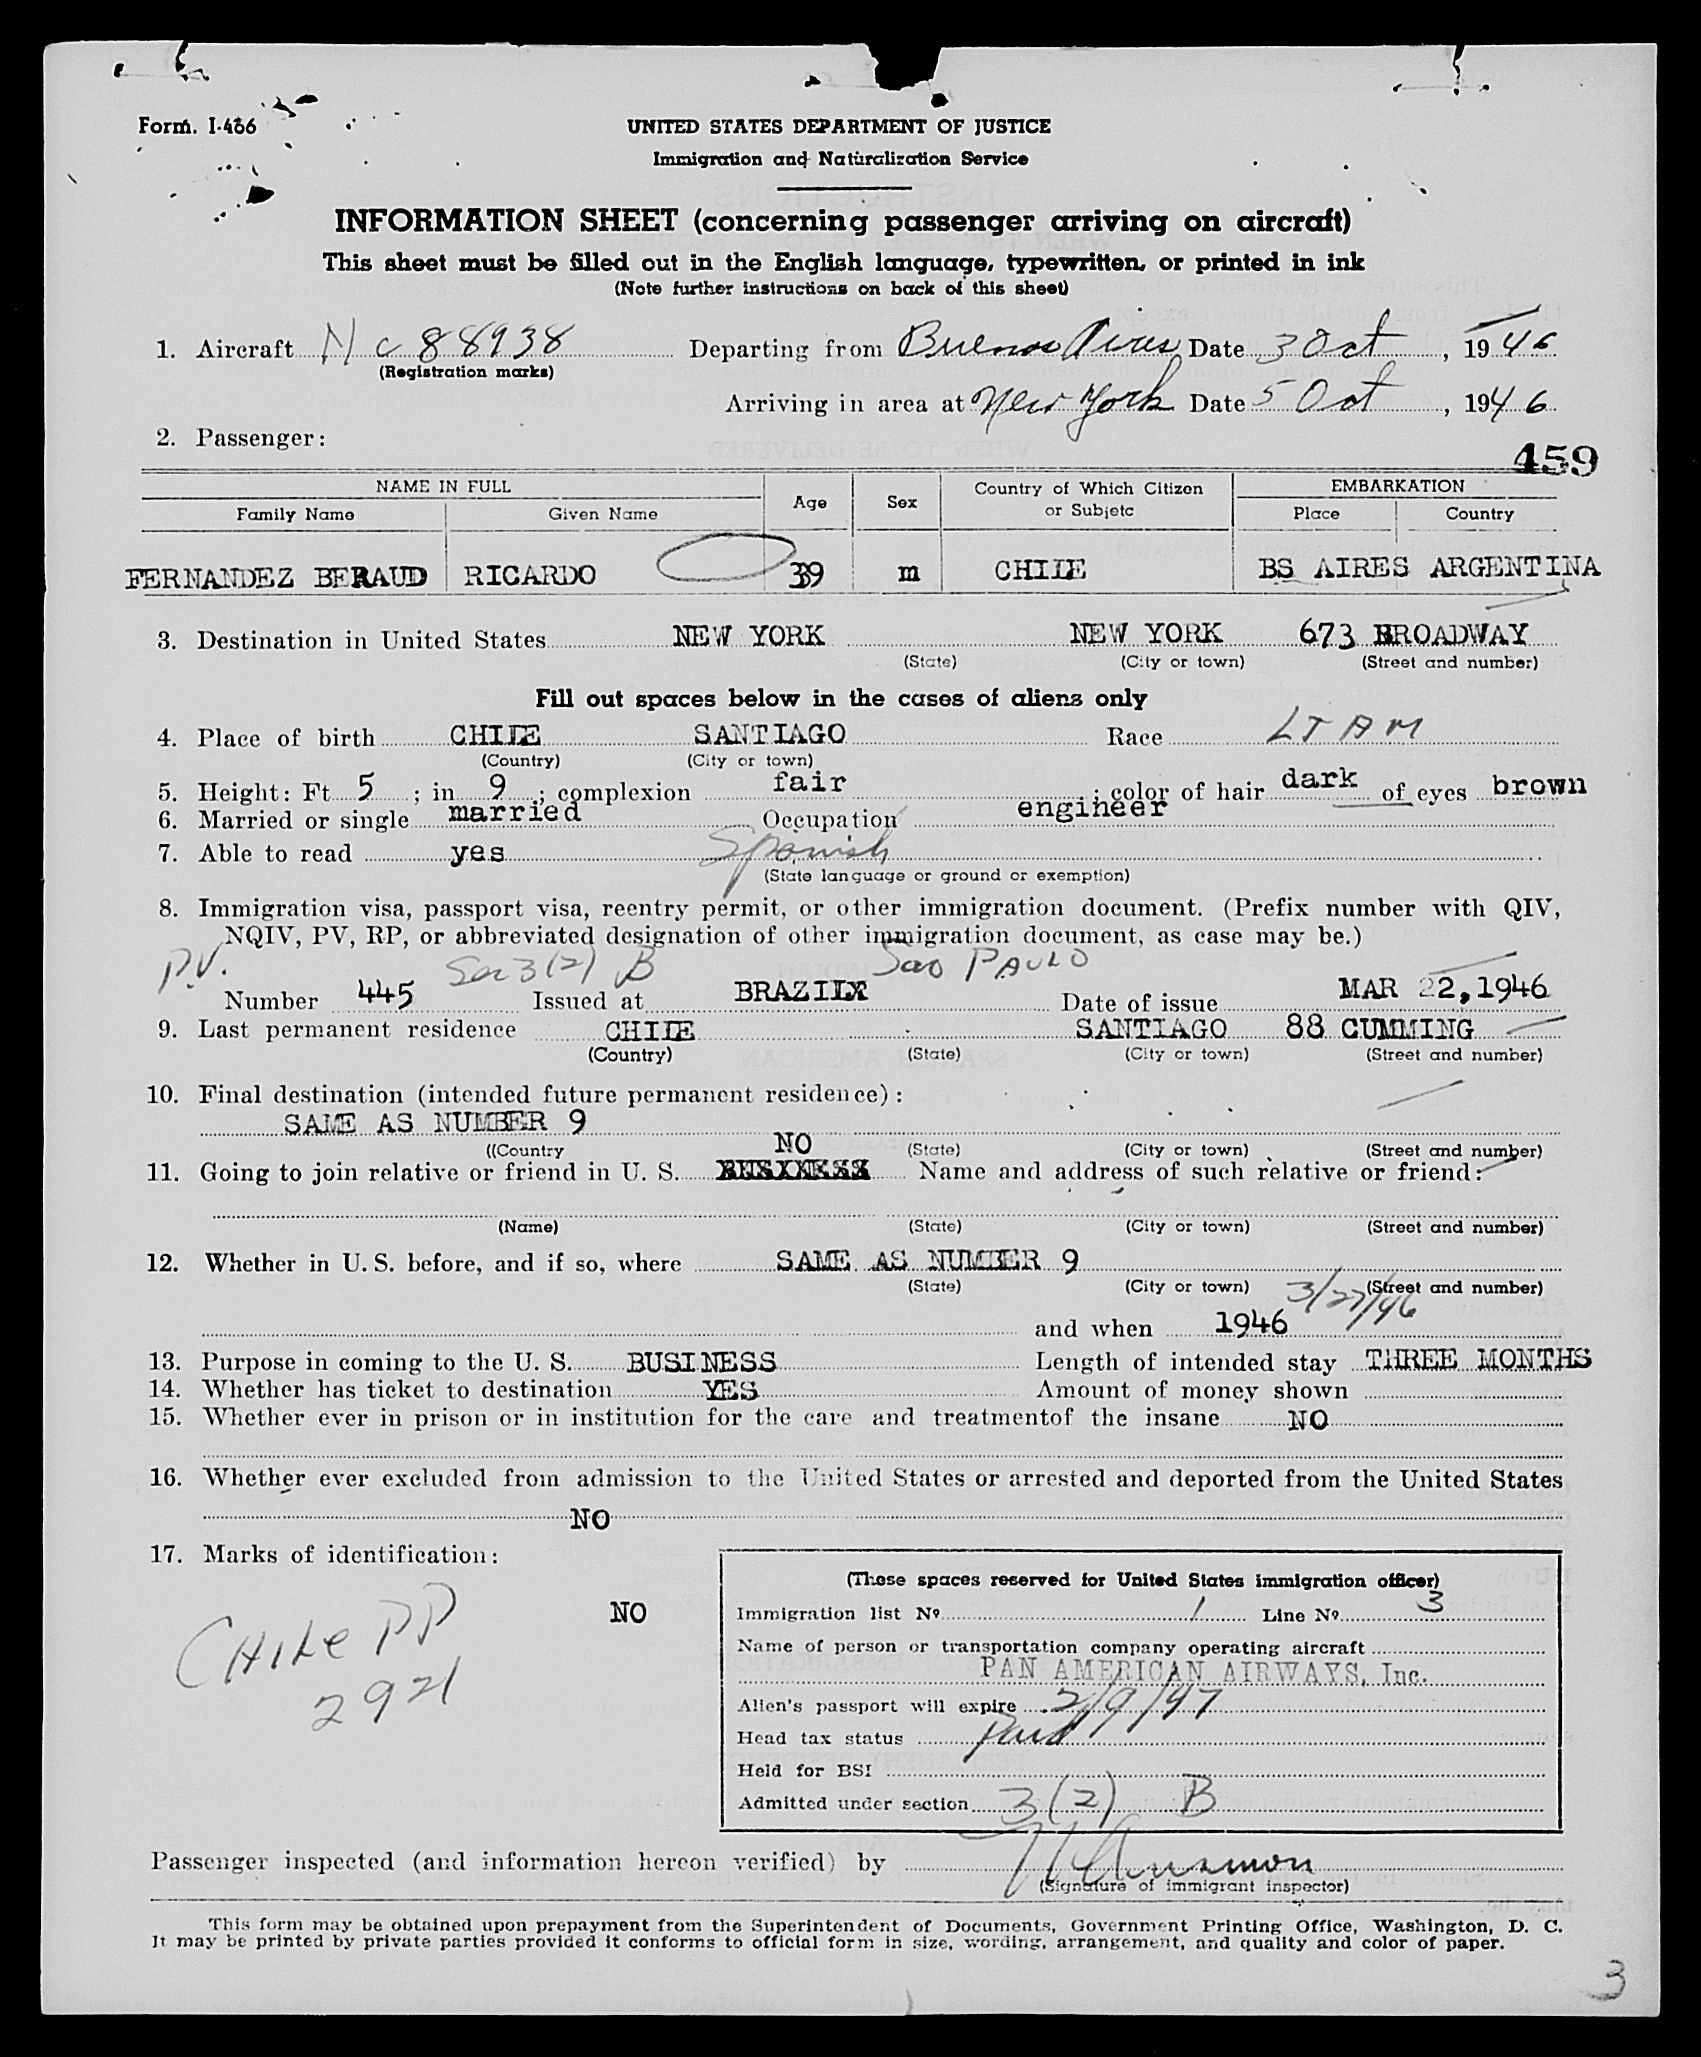 Form. I-466
UNITED STATES DEPARTMENT OF JUSTICE
Immigration and Naturalization Service
INFORMATION SHEET (concerning passenger arriving on aircraft)
This sheet must be filled out in the English language, typewritten, or printed in ink
(Note further instructions on back of this sheet)
1. Aircraft Nc 88938 Departing from Buenos Aires Date 3 Oct, 1946
(Registration marks)
Arriving in area at New York Date 5 Oct, 1946
2. Passenger:
459
NAME IN FULL Age Sex Country of Which Citizen or Subjetc EMBARKATION
Family Name Given Name Place Country
FERNANDEZ BERAUD RICARDO 39 m CHILE BS AIRES ARGENTINA
3. Destination in United States NEW YORK NEW YORK 673 BROADWAY
(State) (City or town) (Street and number)
Fill out spaces below in the cases of aliens only
4. Place of birth CHILE SANTIAGO Race LTAM
(Country) (City or town)
5. Height: Ft 5 ; in 9 ; complexion fair ; color of hair dark of eyes brown
6. Married or single married Occupation engineer
7. Able to read yes Spanish
(State language or ground or exemption)
8. Immigration visa, passport visa, reentry permit, or other immigration document. (Prefix number with QIV,
NQIV, PV, RP, or abbreviated designation of other immigration document, as case may be.)
P.V. Sec 3(2) B Sao PAULO
Number 445 Issued at BRAZIL Date of issue MAR 22, 1946
9. Last permanent residence CHILE SANTIAGO 88 CUMMING
(Country) (State) (City or town) (Street and number)
10. Final destination (intended future permanent residence):
SAME AS NUMBER 9
((Country (State) (City or town) (Street and number)
NO
11. Going to join relative or friend in U. S. Name and address of such relative or friend:
(Name) (State) (City or town) (Street and number)
12. Whether in U. S. before, and if so, where SAME AS NUMBER 9
(State) (City or town) (Street and number)
3/27/46
and when 1946
13. Purpose in coming to the U. S. BUSINESS Length of intended stay THREE MONTHS
14. Whether has ticket to destination YES Amount of money shown
15. Whether ever in prison or in institution for the care and treatmentof the insane NO
16. Whether ever excluded from admission to the United States or arrested and deported from the United States
NO
17. Marks of identification:
NO
CHILE PP
2921
(These spaces reserved for United States immigration officer)
Immigration list Nº 1 Line Nº 3
Name of person or transportation company operating aircraft
PAN AMERICAN AIRWAYS, Inc.
Alien's passport will expire 2/9/47
Head tax status Paid
Held for BSI
Admitted under section 3(2) B
Passenger inspected (and information hereon verified) by
(Signature of immigrant inspector)
This form may be obtained upon prepayment from the Superintendent of Documents, Government Printing Office, Washington, D. C.
It may be printed by private parties provided it conforms to official form in size, wording, arrangement, and quality and color of paper.
3